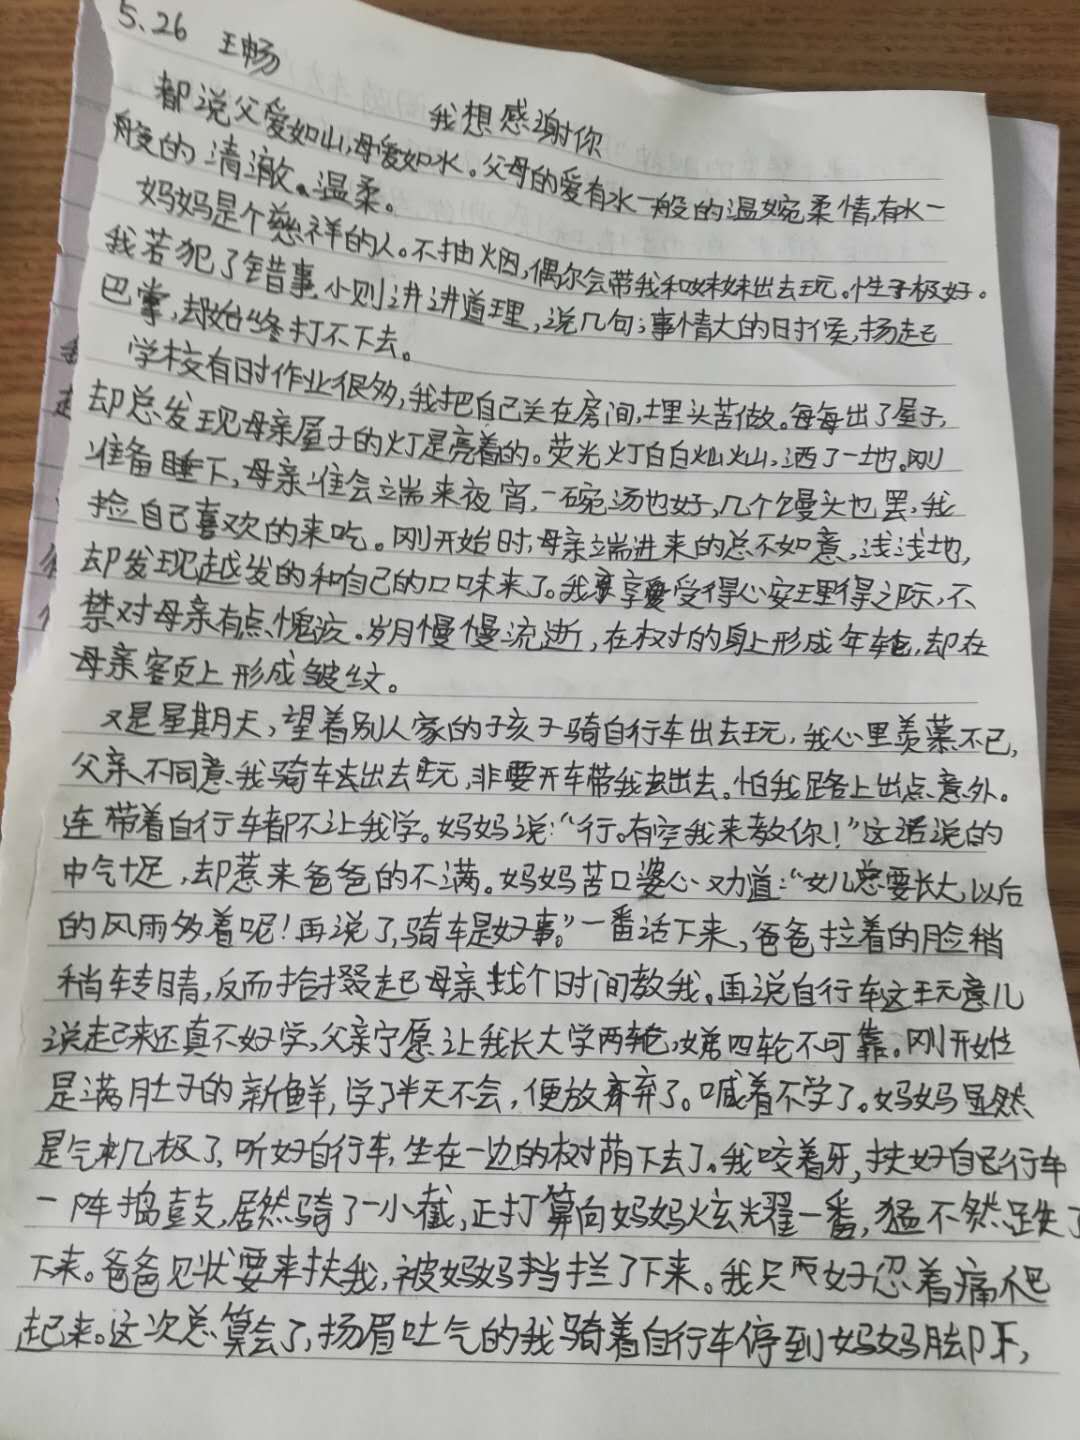 5.26 王畅
我想感谢你
都说父爱如山,母爱如水。父母的爱有水一般的温婉柔情,有水一
般的清澈、温柔。
妈妈是个慈祥的人。不抽烟,偶尔会带我和妹妹出去玩。性子极好。
我若犯了错事,小则讲讲道理,说几句;事情大的时候,扬起
巴掌,却始终打不下去。
学校有时作业很多,我把自己关在房间,埋头苦做。每每出了屋子,
却总发现母亲屋子的灯是亮着的。荧光灯白白灿灿,洒了一地。刚
准备睡下,母亲准会端来夜宵,一碗汤也好,几个馒头也罢,我
捡自己喜欢的来吃。刚开始时,母亲端进来的总不如意,浅浅地,
却发现越发的和自己的口味来了。我享受得心安理得之际,不
禁对母亲有点愧疚。岁月慢慢流逝,在树的身上形成年轮,却在
母亲容页上形成皱纹。
又是星期天,望着别人家的子孩子骑自行车出去玩,我心里羡慕不已,
父亲不同意我骑车去出去玩,非要开车带我出去。怕我路上出点意外。
连带着自行车都不让我学。妈妈说:“行。有空我来教你!”这话说的
中气十足,却惹来爸爸的不满。妈妈苦口婆心劝道:“女儿总要长大,以后
的风雨多着呢!再说了,骑车是好事。”一番话下来,爸爸拉着的脸稍
稍转晴,反而撺掇起母亲找个时间教我。再说自行车这玩意儿
说起来还真不好学,父亲宁愿让我长大学两轮,娣四轮不可靠。刚开始
是满肚子的新鲜,学了半天不会,便放弃了。喊着不学了。妈妈显然
是气来几极了,听好自行车,坐在一边的树荫下去了。我咬着牙,扶好自己行车
一阵捣鼓,居然骑了一小截,正打算向妈妈炫耀一番,猛不然跌了
下来。爸爸见状要来扶我,被妈妈挡拦了下来。我只好忍着痛爬
起来。这次总算会了,扬眉吐气的我骑着自行车停到妈妈脚下,